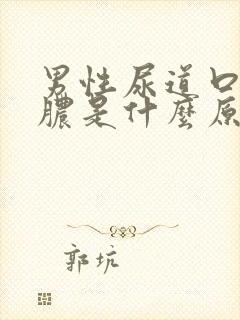 男性尿道口
膿是什麼原
郭坑